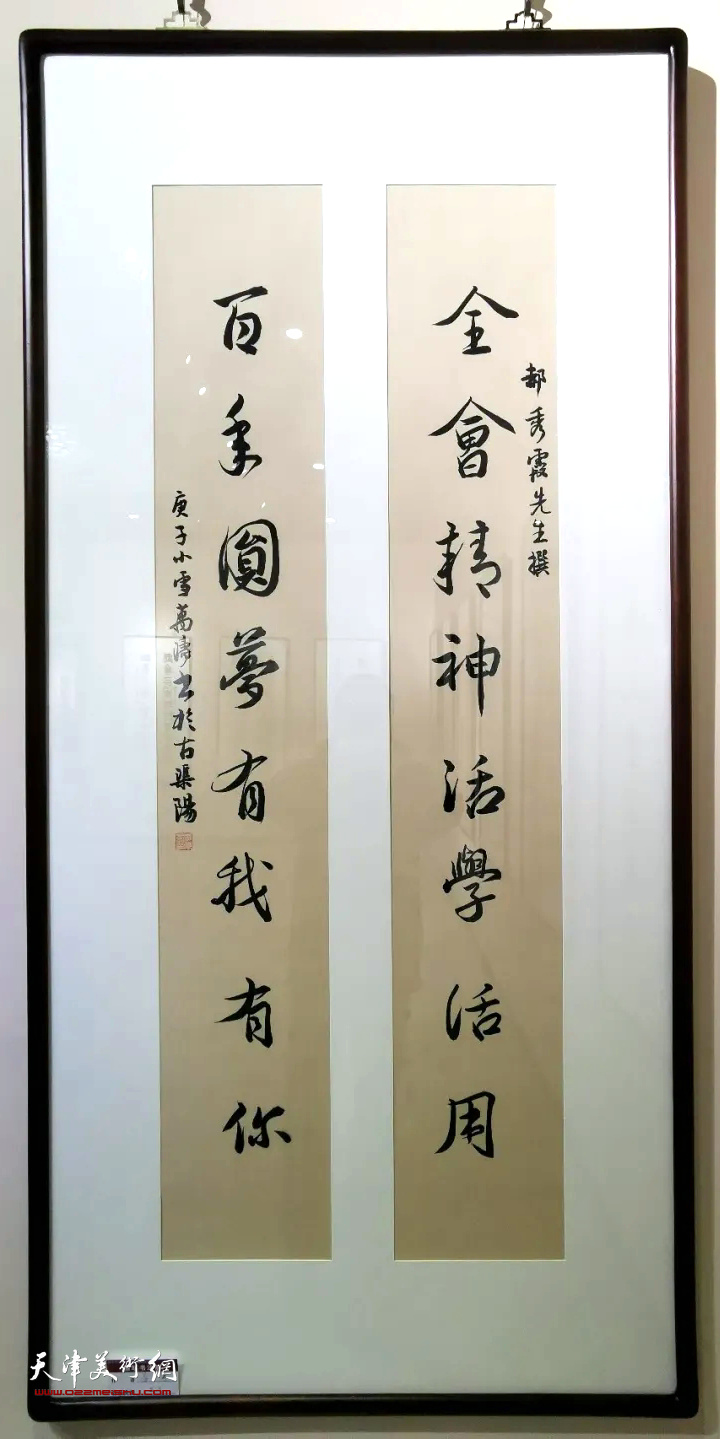 郝秀霞先生撰
全會精神活學活用
百年圓夢有我有你
庚子小雪萬濤书於古渠陽
天津美術網